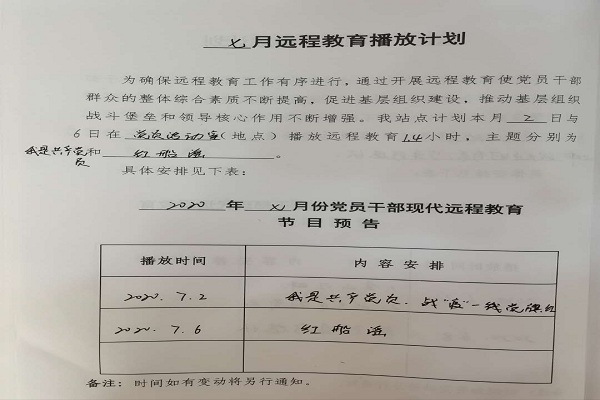 七月远程教育播放计划
为确保远程教育工作有序进行，通过开展远程教育使党员干部
群众的整体综合素质不断提高，促进基层组织建设，推动基层组织
战斗堡垒和领导核心作用不断增强。我站点计划本月 2 日与
6日在 党员活动室(地点）播放远程教育1.4小时，主题分别为
我是共产党员和 红船谣 。
具体安排见下表：
2020 年 七 月份党员干部现代远程教育
节目预告
播放时间 内容安排
2020.7.2 我是共产党员.战"疫"一线党旗红
2020.7.6 红船谣
备注：时间如有变动将另行通知。